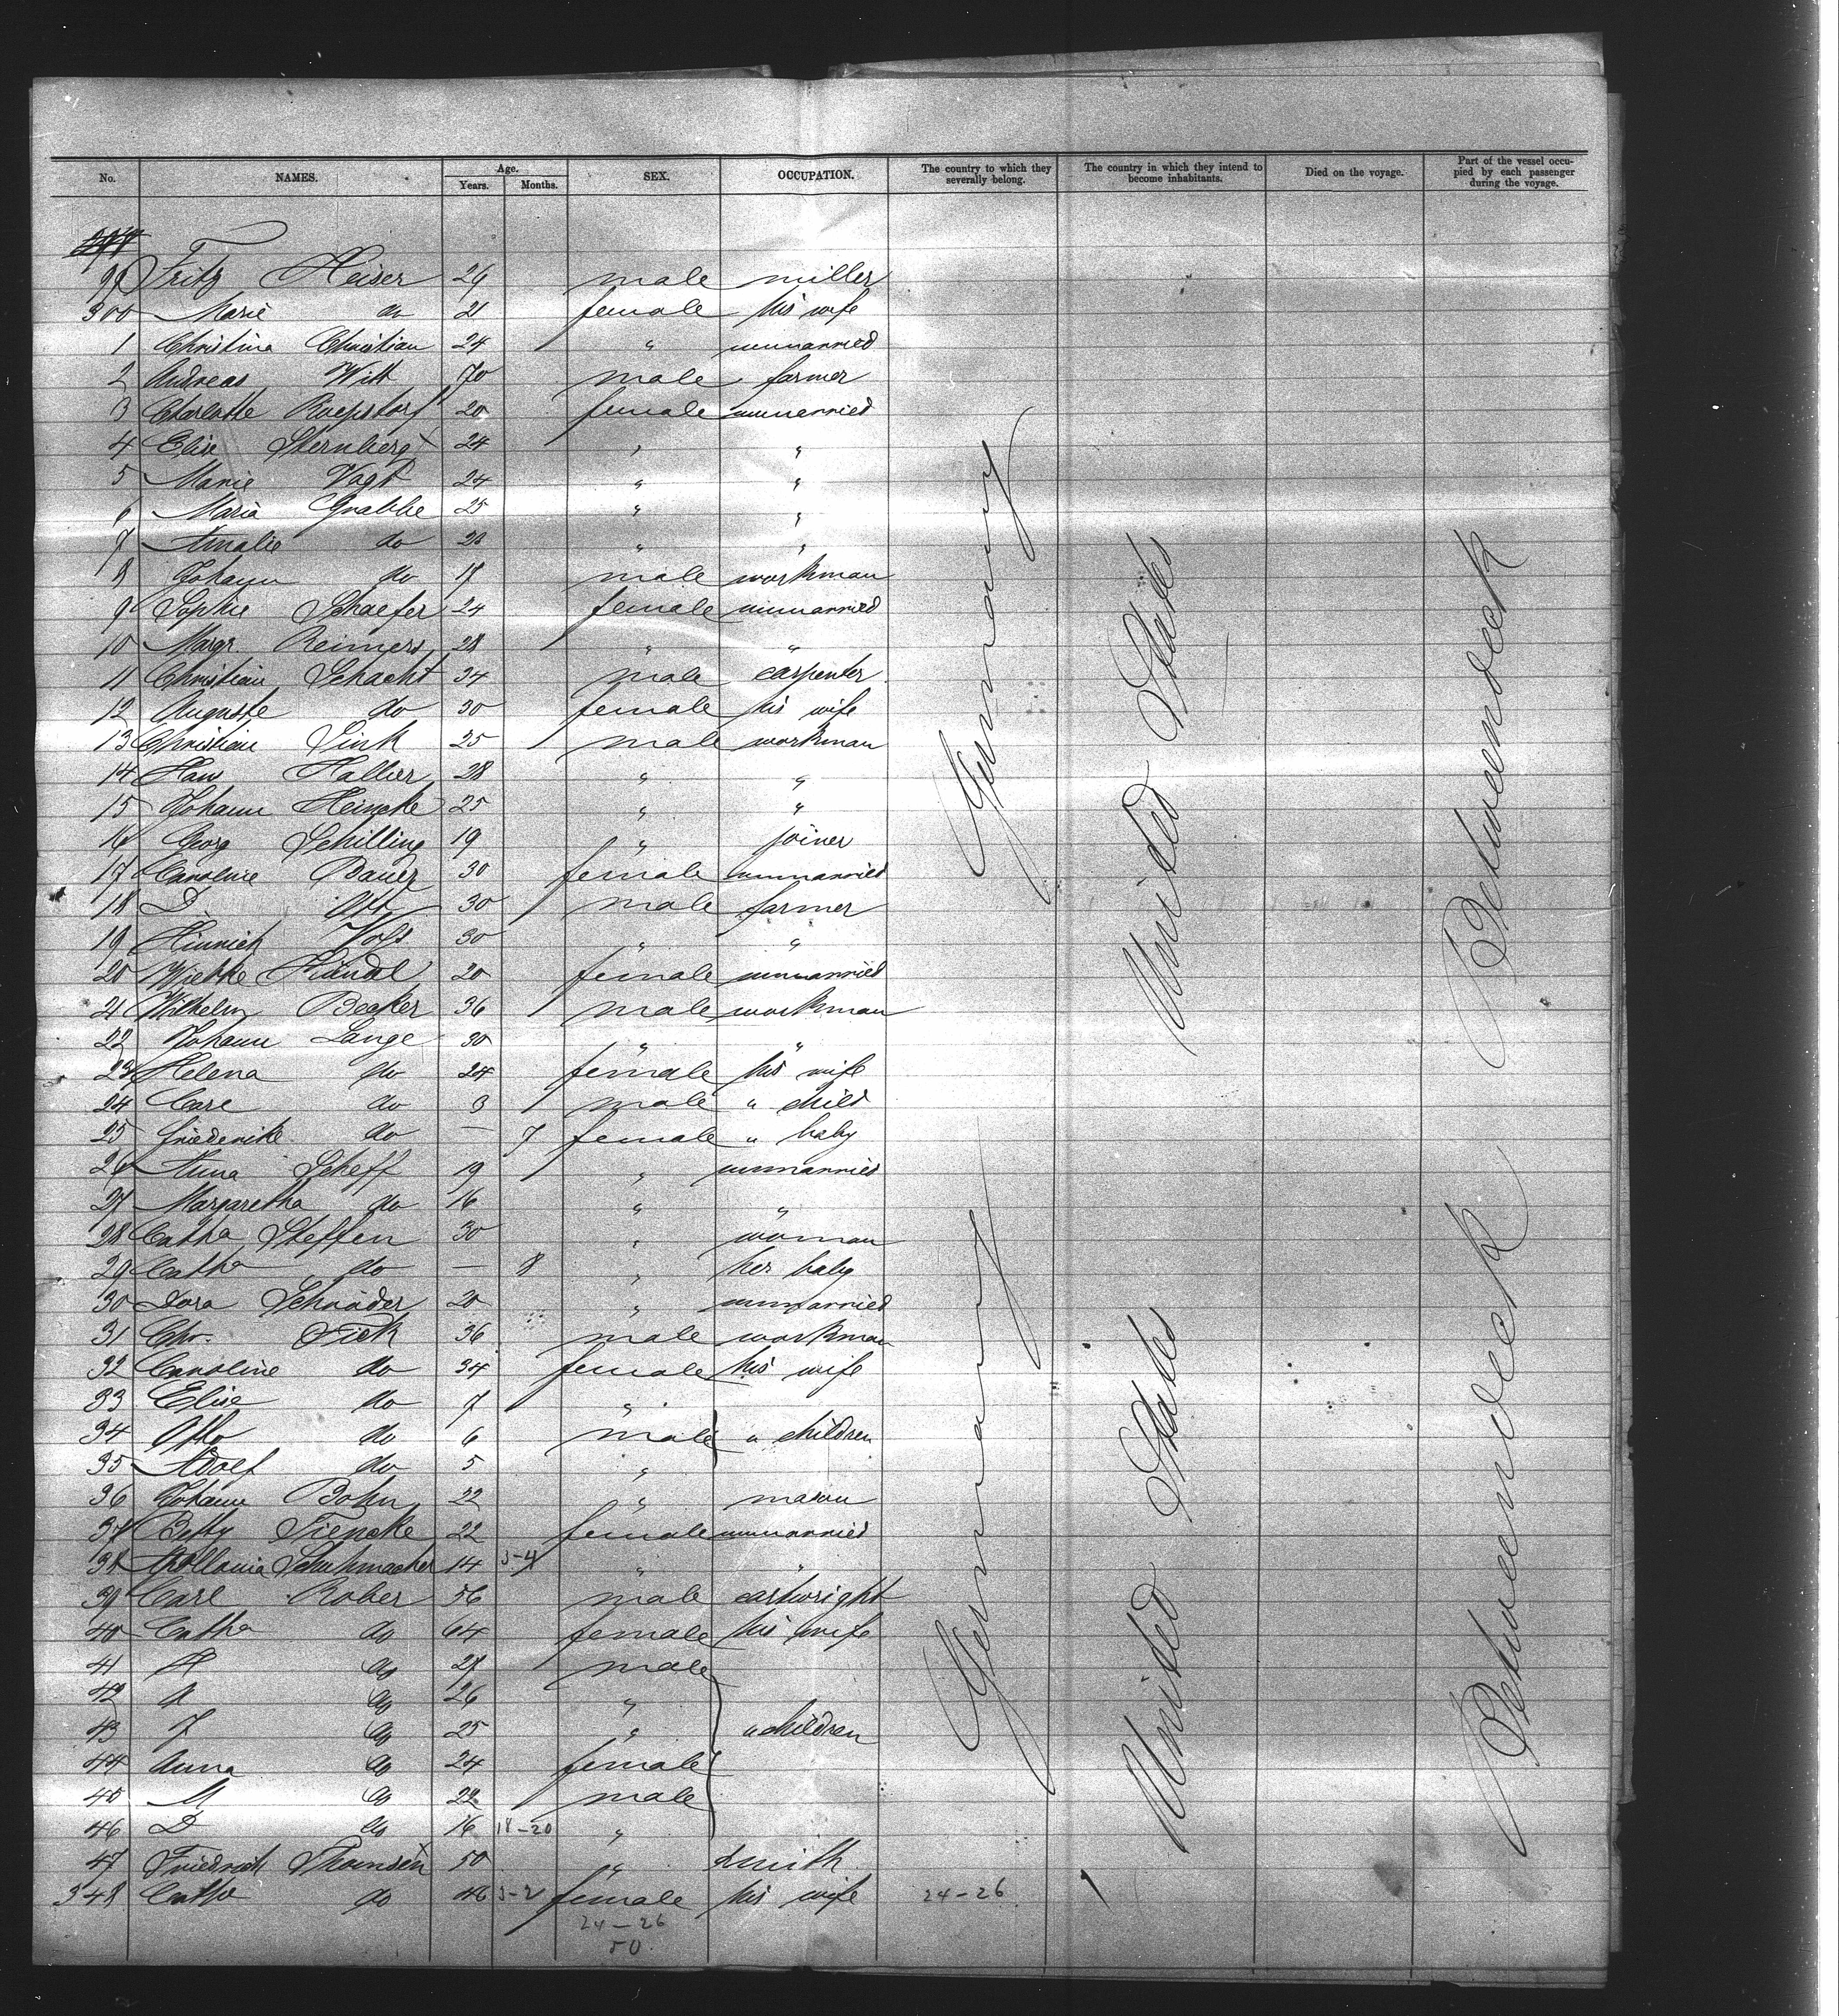 No. NAMES. Age. Years. Months. SEX. OCCUPATION. The country to which they severally belong. The country in which they intend to become inhabitants. Died on the voyage. Part of the vessel occupied by each passenger during the voyage.
99 Fritz Heiser 29 male miller
300 Marie do 21 female his wife
1 Christina Christian 24 " unmarried
2 Andreas Witt 70 male farmer
3 Charlotte Roepstorf 20 female unmarried
4 Elise Sternberg 24 " "
5 Marie Vogt 24 " "
6 Maria Grabbe 25 " "
7 Amalie do 23 " "
8 Johann do 17 male workman
9 Sophie Schaefer 24 female unmarried
10 Margr. Reimers 28 " "
11 Christian Schacht 34 male carpenter
12 Auguste do 30 female his wife
13 Christian Sink 25 male workman
14 Hans Hallier 28 " "
15 Johann Heincke 25 " "
16 Georg Schilling 19 " joiner
17 Caroline Bauer 30 female unmarried
18 D Ott 30 male farmer
19 Hinrich Vohs 30 " "
20 Wiebke 20 female unmarried
21 Wilhelm Becker 36 male workman
22 Johann Lange 30 " "
23 Helena do 24 female his wife
24 Carl do 3 male " child
25 Friederike do — 7 female " baby
26 Anna Scheff 19 " unmarried
27 Margaretha do 16 " "
28 Catha Steffen 30 " woman
29 Catha do — 8 " her baby
30 Dora Schröder 20 " unmarried
31 Chr. Fick 36 male workman
32 Caroline do 34 female his wife
33 Elise do 7 "
34 Otto do 6 male " children
35 Adolf do 5 "
36 Johann Bohn 22 " mason
37 Betty Tiencke 22 female unmarried
38 Apollonia Schuhmacher 14 3-4 " "
39 Carl Rober 56 male cartwright
40 Catha do 64 female his wife
41 H do 28 male
42 do 26 "
43 J do 25 " " children
44 Anna do 24 female
45 M do 22 male
46 D do 16 18-20 "
47 Friedrich Thomsen 50 " smith
348 Catha do 46 3-2 female his wife 24-26
24-26
50
Germany
Germany
United States
United States
Betweendeck
Betweendeck